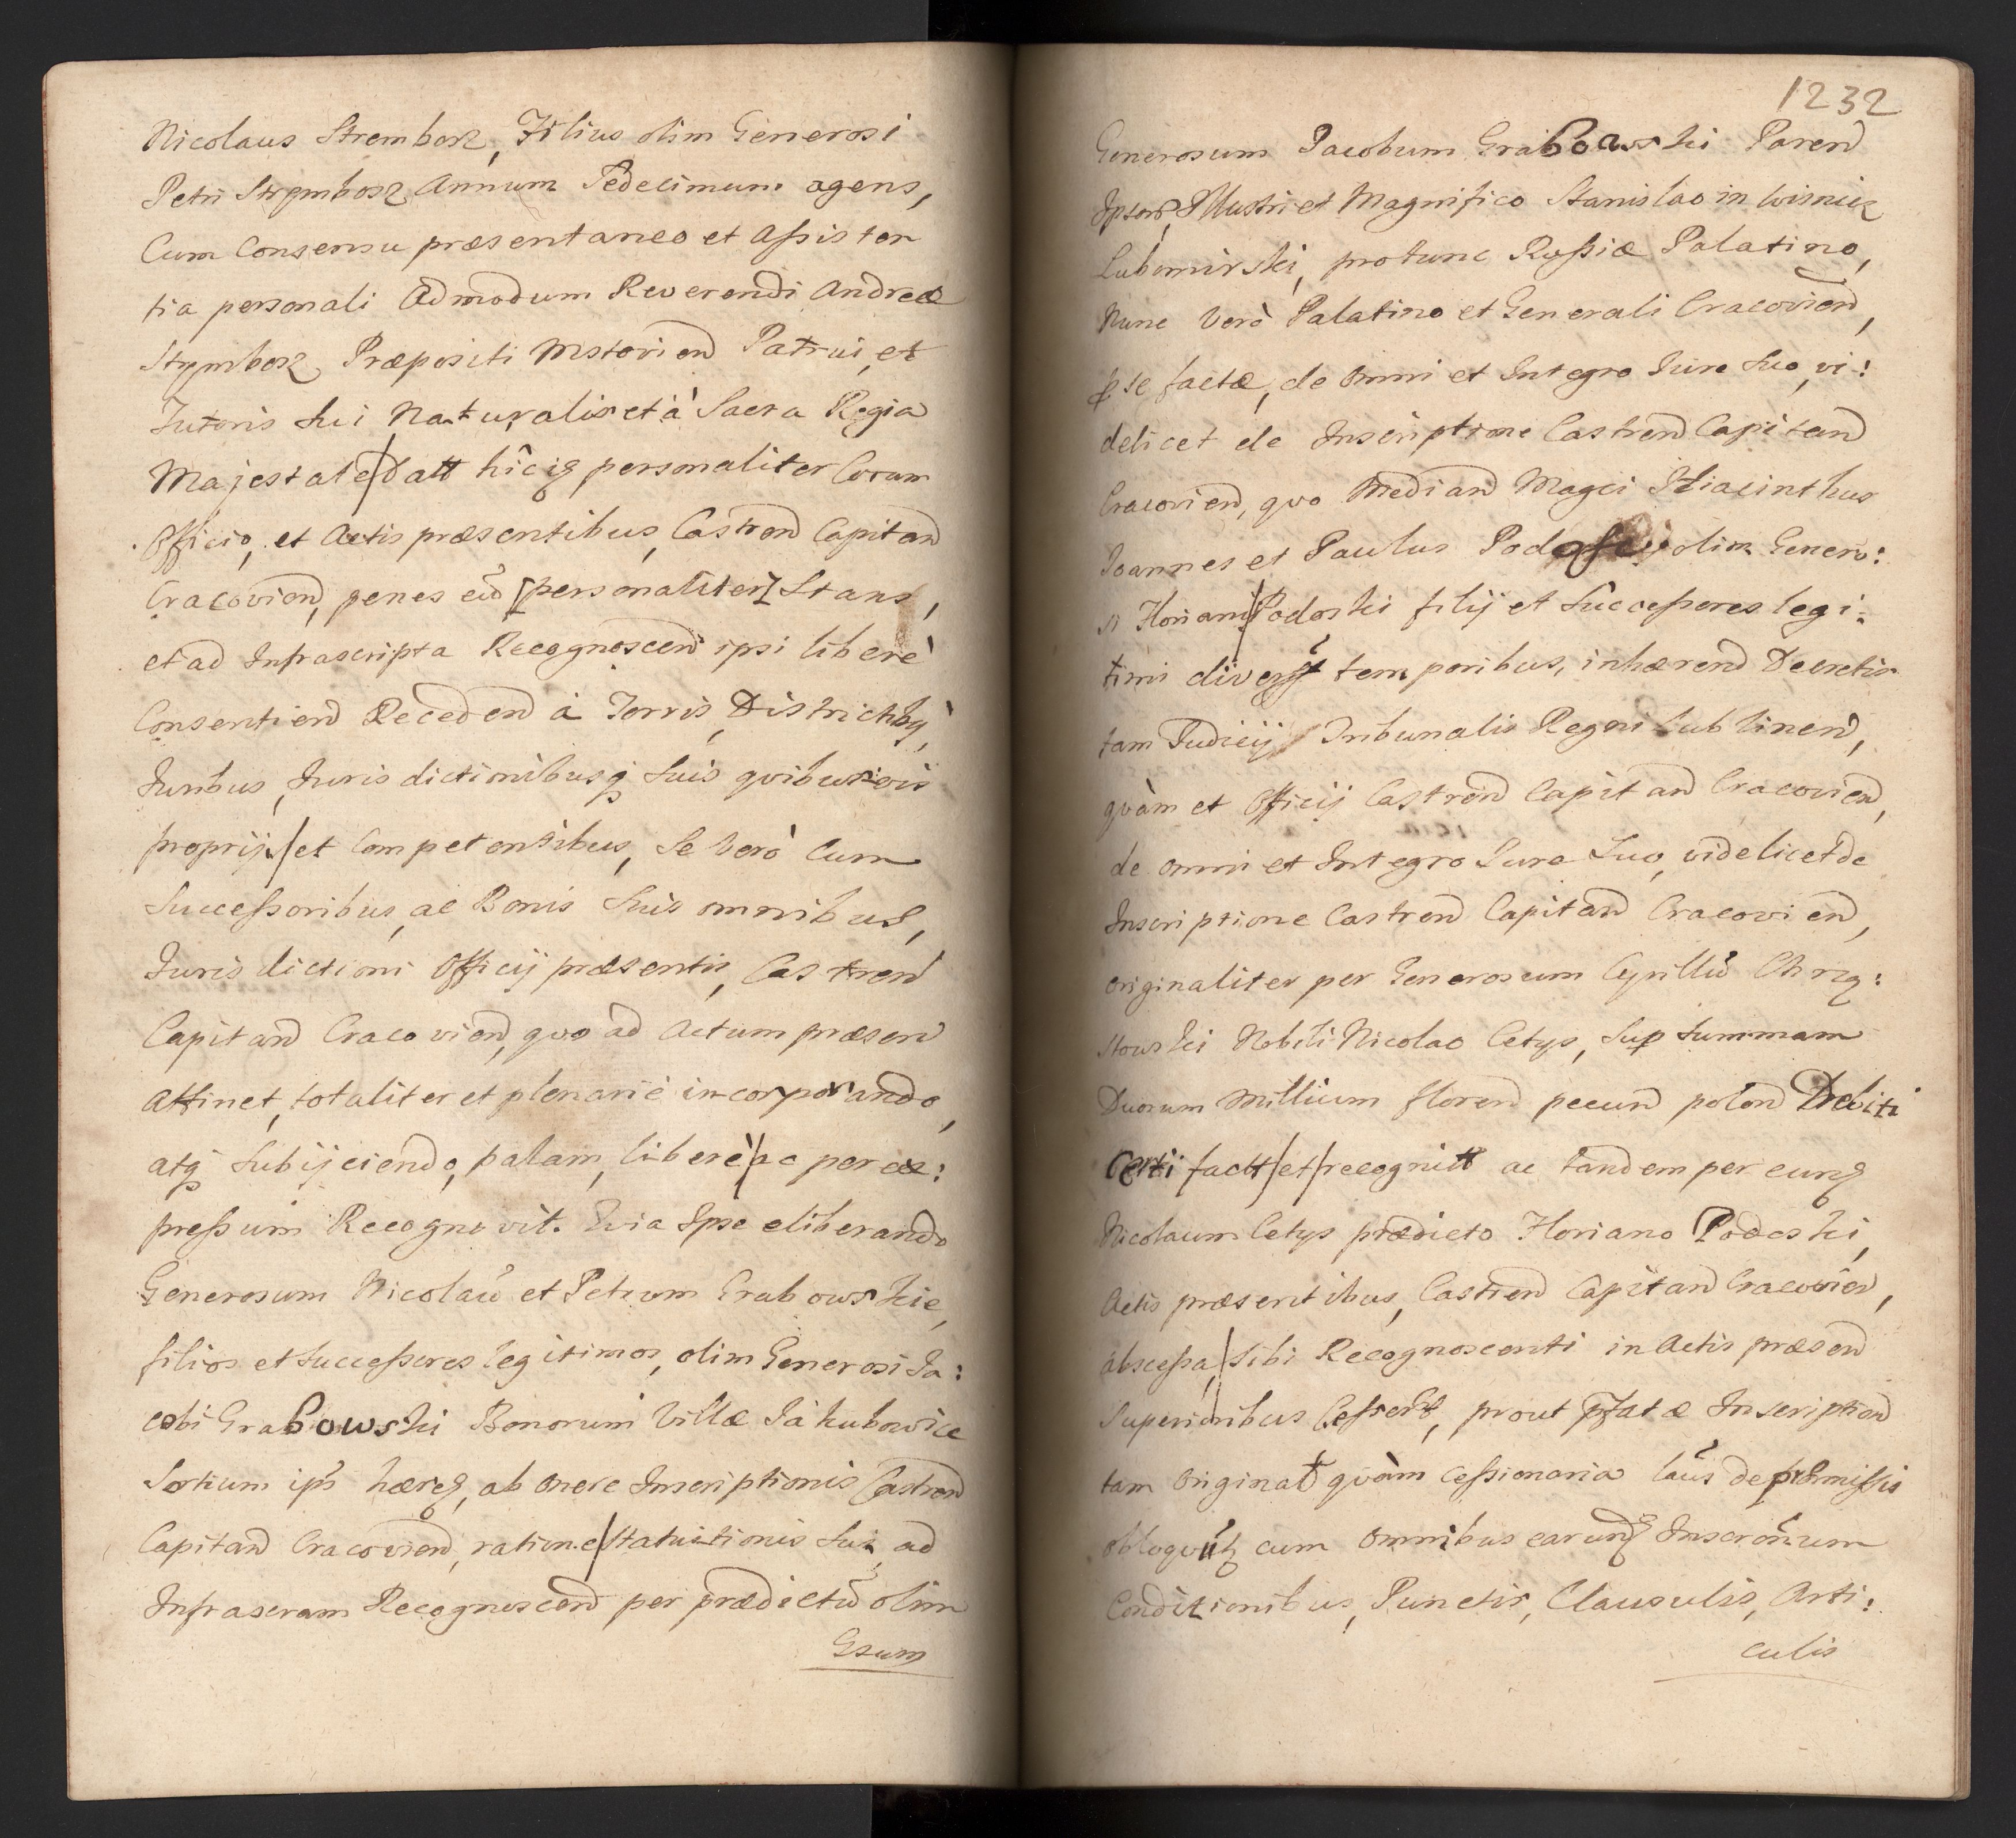 Nicolaus Strembosz, Filius olim Generosi
Petri Strembosz Annum Sedecimum agens,
Cum Consensu præsentaneo et Assisten
tia personali Admodum Reverendi Andreæ
Strembosz Præpositi Mstovien Patrui, et
Tutoris Sui Naturalis et à Sacra Regia
Majestate Datt hîcq personaliter Coram
Officio, et Actis præsentibus, Castren Capitan
Cracovien, penes eũ [personaliter] Stans,
et ad Infrascripta Recognoscen ipsi liberè
Consentien Receden à Terris, Districtibq,
Juribus, Jurisdictionibusq Suis quibusvis
proprijs et Competentibus, Se verò Cum
Successoribus, ac Bonis Suis omnibus,
Jurisdictioni Officij præsentis, Castren
Capitan Cracovien, quo ad Actum præsen
attinet, totaliter et plenariè incorporando,
atq Subijciendo, palam, liberè ac per ex:
pressum Recognovit. Quia Ipse eliberando
Generosum Nicolaũ et Petrum Grabowskie,
filios et Successores legitimos, olim Generosi Ja:
cobi Grabowski Bonorum Villæ Jakubowice
Sortium ips hæreq, ab onere Inscriptionis Castren
Capitan Cracovien, ratione Statuitionis Sui, ad
Infrascram Recognoscen per prædictũ olim
Gsum
1232
Generosum Jacobum Grabowski Paren
Ipsor, Illustri et Magnifico Stanislao in Wisnicz
Lubomirski, protunc Russiæ Palatino,
Nunc verò Palatino et Generali Cracovien,
p se factæ, de omni et Integro Jure Suo, vi:
delicet de Inscriptione Castren Capitan
Cracovien, quo Median Magci Hiacinthus
Joannes et Paulus Podoscy olim Genero:
si Floriani Podoski filij et Successores legi:
timi divers temporibus, inhæren Decretis
tam Judicij Tribunalis Regni Lublinen,
quàm et Officij Castren Capitan Cracovien,
de omni et Integro Jure Suo, videlicet de
Inscriptione Castren Capitan Cracovien,
originaliter per Generosum Cyrillũ Chrzą:
stowski Nobili Nicolao Cetys, Sup Summam
Duorum Millium floren pecun polon Debiti
Certi factt et recognitt ac tandem per eunq
Nicolaum Cetys prædicto Floriano Podoski,
Actis præsentibus, Castren Capitan Cracovien,
abscessa, Sibi Recognoscenti in Actis præsen
Superioribus Cesserit, prout pfatæ Inscription
tam Originat quàm cessionaria latiũs de præmissis
obloquũt cum Omnibus earunq Inscronum
Conditionibus, Punctis, Clausulis, Arti:
culis